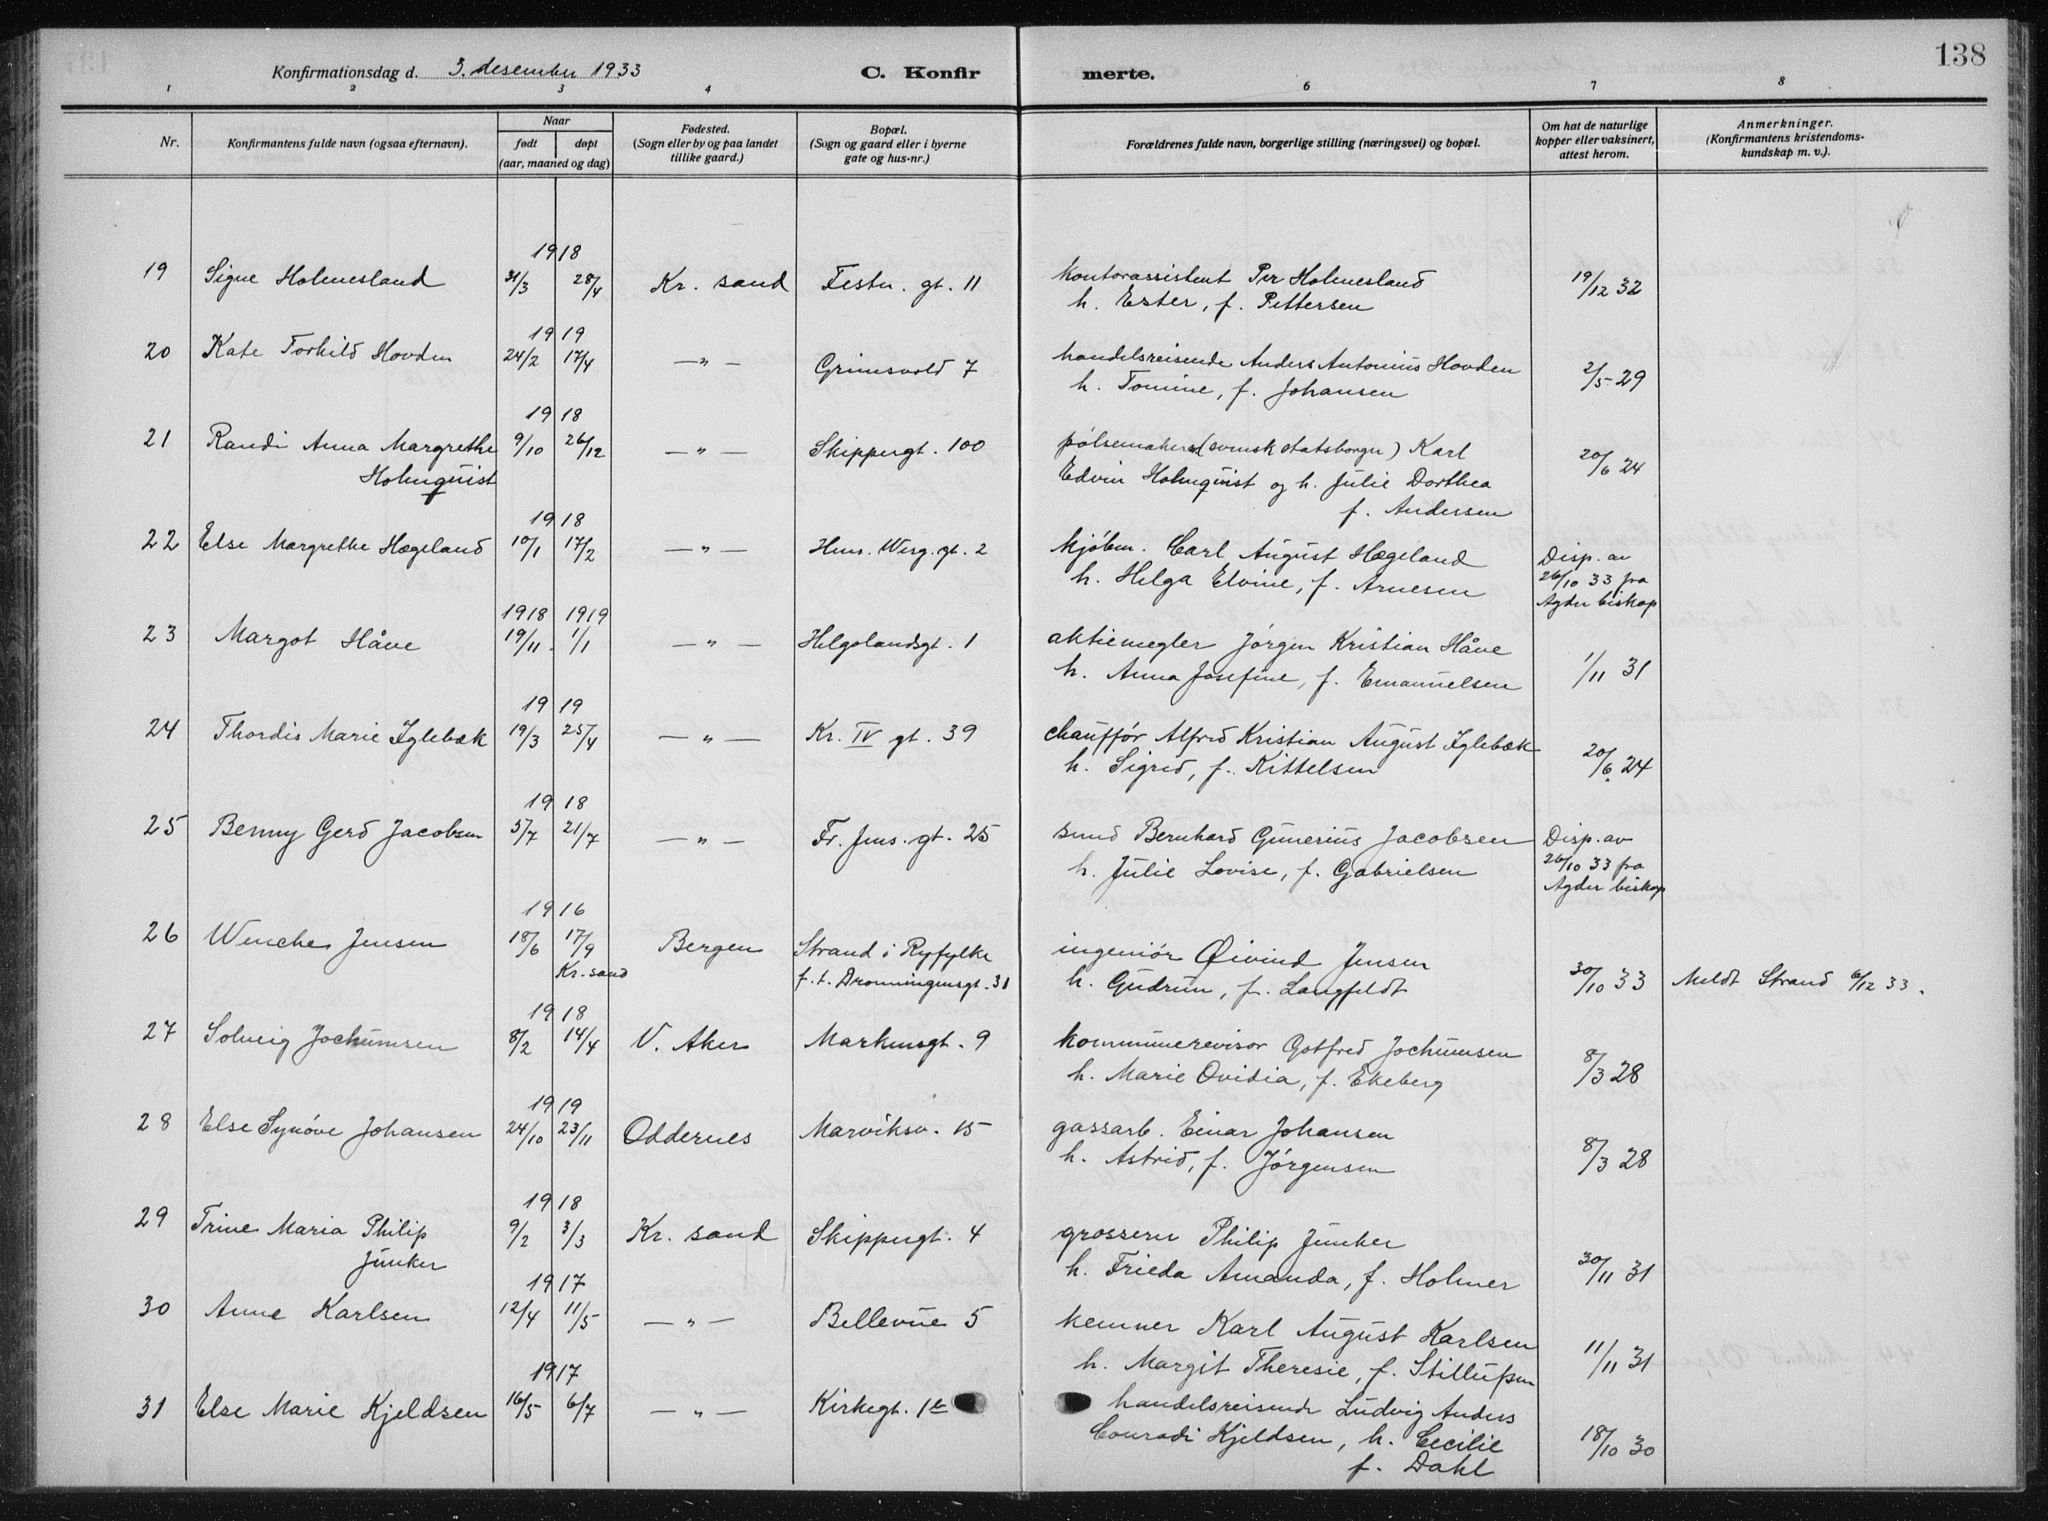 138
Konfirmationsdag d. 3. desember 1933 C. Konfir merte.
1 2 3 4 6 7 8
Nr. Konfirmantens fulde navn (ogsaa efternavn). Naar født døpt (aar, maaned og dag) Fødested. (Sogn eller by og paa landet tillike gaard.) Bopæl. (Sogn og gaard eller i byerne gate og hus-nr.) Forældrenes fulde navn, borgerlige stilling (næringsvei) og bopæl. Om hat de naturlige kopper eller vaksinert, attest herom. Anmerkninger. (Konfirmantens kristendomskundskap m. v.).
1918
19 Signe Holmesland 31/3 28/4 Kr. sand Festn. gt. 11 kontorassistent Per Holmesland 19/12 32
h. Ester, f. Pettersen
1919
20 Kate Torhild Hovden 24/2 17/4 — " — Grimsvold 7 handelsreisende Anders Antonius Hovden 2/5 29
h. Tomine, f. Johansen
1918
21 Randi Anna Margrethe 9/10 26/12 — " — Skippergt. 100 pølsemaker (svensk statsborger) Karl 20/6 24
Holmquist Edvin Holmquist og h. Julie Dorthea
f. Andersen
1918
22 Else Margrethe Hægeland 10/1 17/2 — " — Hens. Werg. gt. 2 kjøbm. Carl August Hægeland Disp. av
h. Helga Elvine, f. Arnesen 26/10 33 fra
Agder biskop
1918 1919
23 Margot Håve 19/11 1/1 — " — Helgolandsgt. 1 aktiemegler Jørgen Kristian Håve 1/11 31
h. Anna Josefine, f. Emanuelsen
1919
24 Thordis Marie Iglebæk 19/3 25/4 — " — Kr. IV gt. 39 chauffør Alfred Kristian August Iglebæk 20/6 24
h. Sigrid, f. Kittelsen
1918
25 Benny Gerd Jacobsen 5/7 21/7 — " — Fr. Jens. gt. 25 smed Bernhard Gunerius Jacobsen Disp. av
h. Julie Lovise, f. Gabrielsen 26/10 33 fra
Agder biskop
1916
26 Wenche Jensen 18/6 17/9 Bergen Strand i Ryfylke ingeniør Øivind Jensen
Kr. sand f. t. Dronningensgt. 31 h. Gudrun, f. Langfeldt 30/10 33 Meldt Strand 6/12 33.
1918
27 Solveig Jochumsen 8/2 14/4 V. Aker Markensgt. 9 kommunerevisor Gotfred Jochumsen 8/3 28
h. Marie Ovidia, f. Ekeberg
1919
28 Else Synøve Johansen 24/10 23/11 Oddernes Marviksv. 15 gassarb. Einar Johansen 8/3 28
h. Astrid, f. Jørgensen
1918
29 Trine Maria Philip 9/2 3/3 Kr. sand Skippergt. 4 grosserer Philip Junker
Junker h. Frieda Amanda, f. Holmer 30/11 31
1917
30 Anne Karlsen 12/4 11/5 — " — Bellevue 5 kemner Karl August Karlsen 11/11 31
h. Margit Theresie, f. Stillufsen
1917
31 Else Marie Kjeldsen 16/5 6/7 — " — Kirkegt. 1 handelsreisende Ludvig Anders
Conradi Kjeldsen, h. Cecilie 18/10 30
f. Dahl